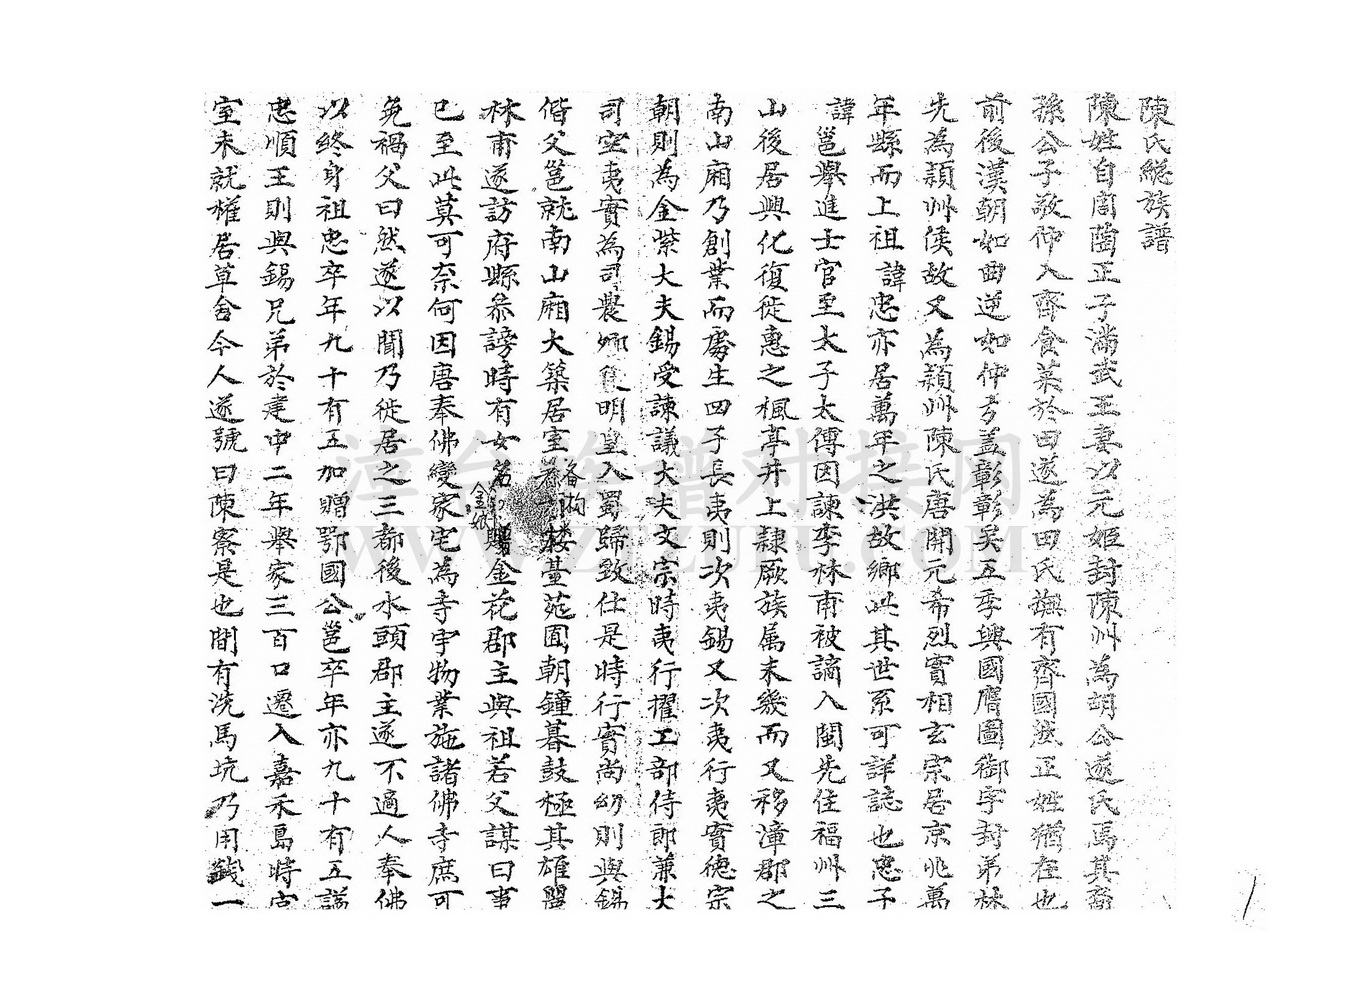 陳氏總族譜
陳姓自周陶正子滿武王妻以元姬封陳州為胡公遂氏焉其裔
孫公子敬仲入齊食菜於田遂為田氏撫有齊國然正姓猶在也
前後漢朝如曲逆如仲弓蓋彰彰矣五季興國膺圖御宇封弟林
先為潁州侯故又為潁州陳氏唐開元希烈實相玄宗居京兆萬
年縣而上祖諱忠亦居萬年之洪故鄉此其世系可詳誌也忠子
諱邕舉進士官至太子太傅因諫李林甫被謫入閩先住福州三
山後居興化復徙惠之楓亭井上隸厥族属未幾而又移漳郡之
南山廂乃創業而處生四子長夷則次夷錫又次夷行夷實德宗
朝則為金紫大夫錫受諫議大夫文宗時夷行擢工部侍郎兼大
司空夷實為司農卿 明皇入蜀歸致仕是時行實尚幼則與錫
偕父邕就南山廂大築居室 各 樓臺苑囿朝鐘暮鼓極其雄盟
林甫遂訪府縣 謗時有女名 金娘 賜金花郡主與祖若父謀曰事
已至此莫可奈何因唐奉佛變家宅為寺宇物業施諸佛寺庶可
免禍父曰然遂以聞乃徙居之三都後水頭郡主遂不適人奉佛
以終身祖忠卒年九十有五加贈鄂國公邕卒年亦九十有五謚
忠順王則與錫兄弟於建中二年舉家三百口遷入嘉禾島時宮
室未就權居草舍今人遂號曰陳寮是也間有洗馬坑乃用錢一
漳台族谱对接网
WWW.ZTZUPU.COM